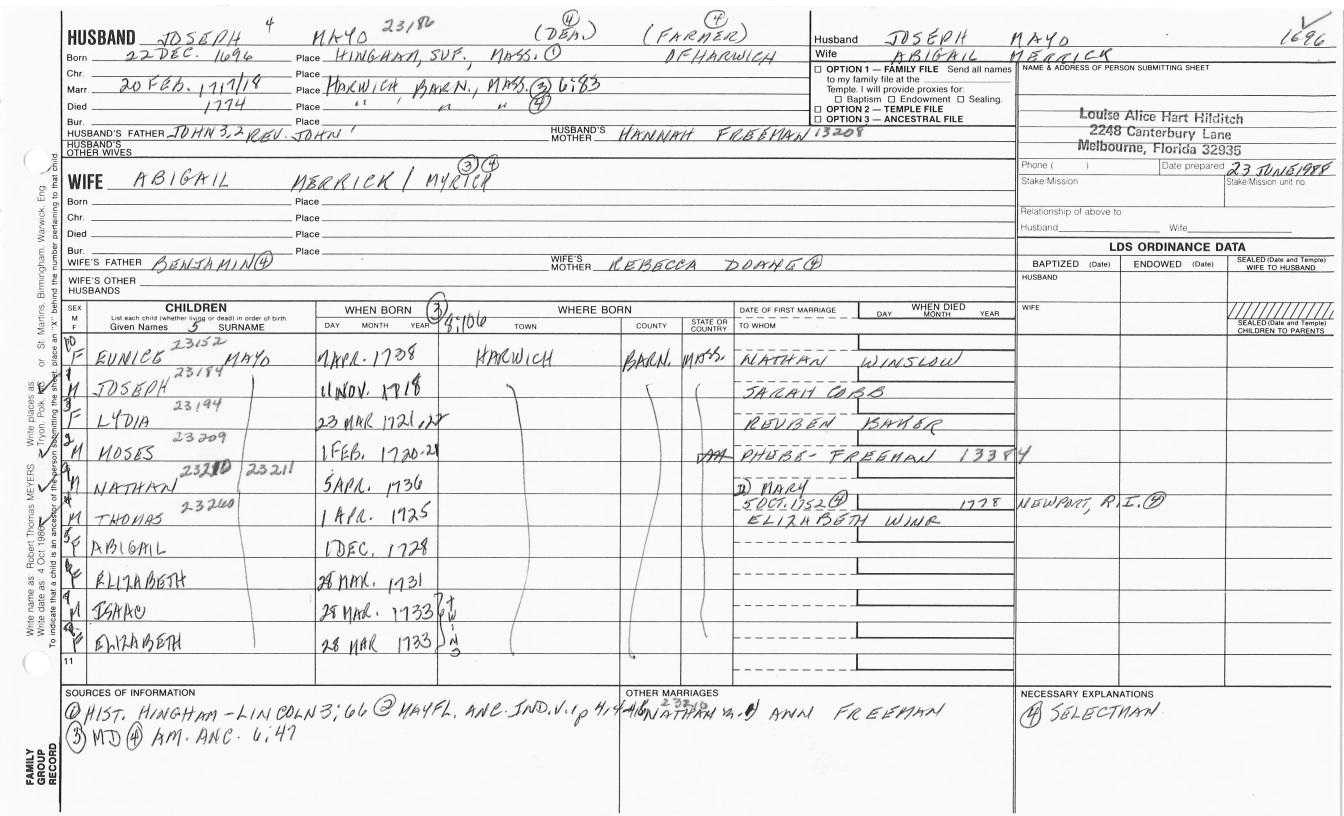 HUSBAND JOSEPH 4 MAYO 23186 (DEA) ④ (FARMER) ④
Born 22 DEC. 1696 Place HINGHAM, SUF., MASS. ① OF HARWICH
Chr. Place
Marr. 20 FEB. 1717/18 Place HARWICH BARN., MASS. ③ 6:83
Died 1774 Place " ' " " ④
Bur.
HUSBAND'S FATHER JOHN 3,2 REV. JOHN 1 HUSBAND'S MOTHER HANNAH FREEMAN 13208
HUSBAND'S OTHER WIVES
Husband JOSEPH MAYO 1696
Wife ABIGAIL MERRICK
☐ OPTION 1 — FAMILY FILE Send all names
to my family file at the
Temple. I will provide proxies for:
☐ Baptism ☐ Endowment ☐ Sealing.
☐ OPTION 2 — TEMPLE FILE
☐ OPTION 3 — ANCESTRAL FILE
NAME & ADDRESS OF PERSON SUBMITTING SHEET
Louise Alice Hart Hilditch
2248 Canterbury Lane
Melbourne, Florida 32935
Phone ( ) Date prepared 23 JUNE 1988
Stake/Mission Stake/Mission unit no.
Relationship of above to
Husband Wife
WIFE ABIGAIL MERRICK / MYRICK ③ ④
Born Place
Chr. Place
Died Place
Bur. Place
WIFE'S FATHER BENJAMIN ④ WIFE'S MOTHER REBECCA DOANE ④
WIFE'S OTHER HUSBANDS
LDS ORDINANCE DATA
BAPTIZED (Date) ENDOWED (Date) SEALED (Date and Temple) WIFE TO HUSBAND
HUSBAND
WIFE
SEALED (Date and Temple) CHILDREN TO PARENTS
SEX M F CHILDREN List each child (whether living or dead) in order of birth Given Names 5 SURNAME WHEN BORN DAY MONTH YEAR ③ 8:106 WHERE BORN TOWN COUNTY STATE OR COUNTRY DATE OF FIRST MARRIAGE TO WHOM WHEN DIED DAY MONTH YEAR
10 F EUNICE 23152 MAYO 7 APR. 1738 HARWICH BARN. MASS. NATHAN WINSLOW
1 M JOSEPH 23184 11 NOV. 1718 SARAH COBB
3 F LYDIA 23194 23 MAR 1721,22 REUBEN BAKER
2 M MOSES 23209 1 FEB. 1720-21 PHUBE- FREEMAN 13384
9 M NATHAN 23210 23211 5 APR. 1736 1) MARY
4 M THOMAS 23260 1 APR. 1725 5 OCT. 1752 ④ ELIZABETH WING 1778 NEWPORT, R.I. ④
5 F ABIGAIL 1 DEC. 1728
6 F ELIZABETH 28 MAR. 1731
M ISAAC 28 MAR. 1733 TWINS
8 F ELIZABETH 28 MAR 1733
11
SOURCES OF INFORMATION
① HIST. HINGHAM - LINCOLN 3:66 ② MAYFL. ANC. IND. V.1 p
③ MD ④ AM. ANC. 6:47
OTHER MARRIAGES
23210
NATHAN ANN FREEMAN
NECESSARY EXPLANATIONS
④ SELECTMAN
Write name as: Robert Thomas MEYERS Write places as: Tryon, Polk, or St. Martins, Birmingham, Warwick, Eng.
Write date as: 4 Oct 1986
To indicate that a child is an ancestor of the person submitting the sheet, place an "X" behind the number pertaining to that child
FAMILY
GROUP
RECORD